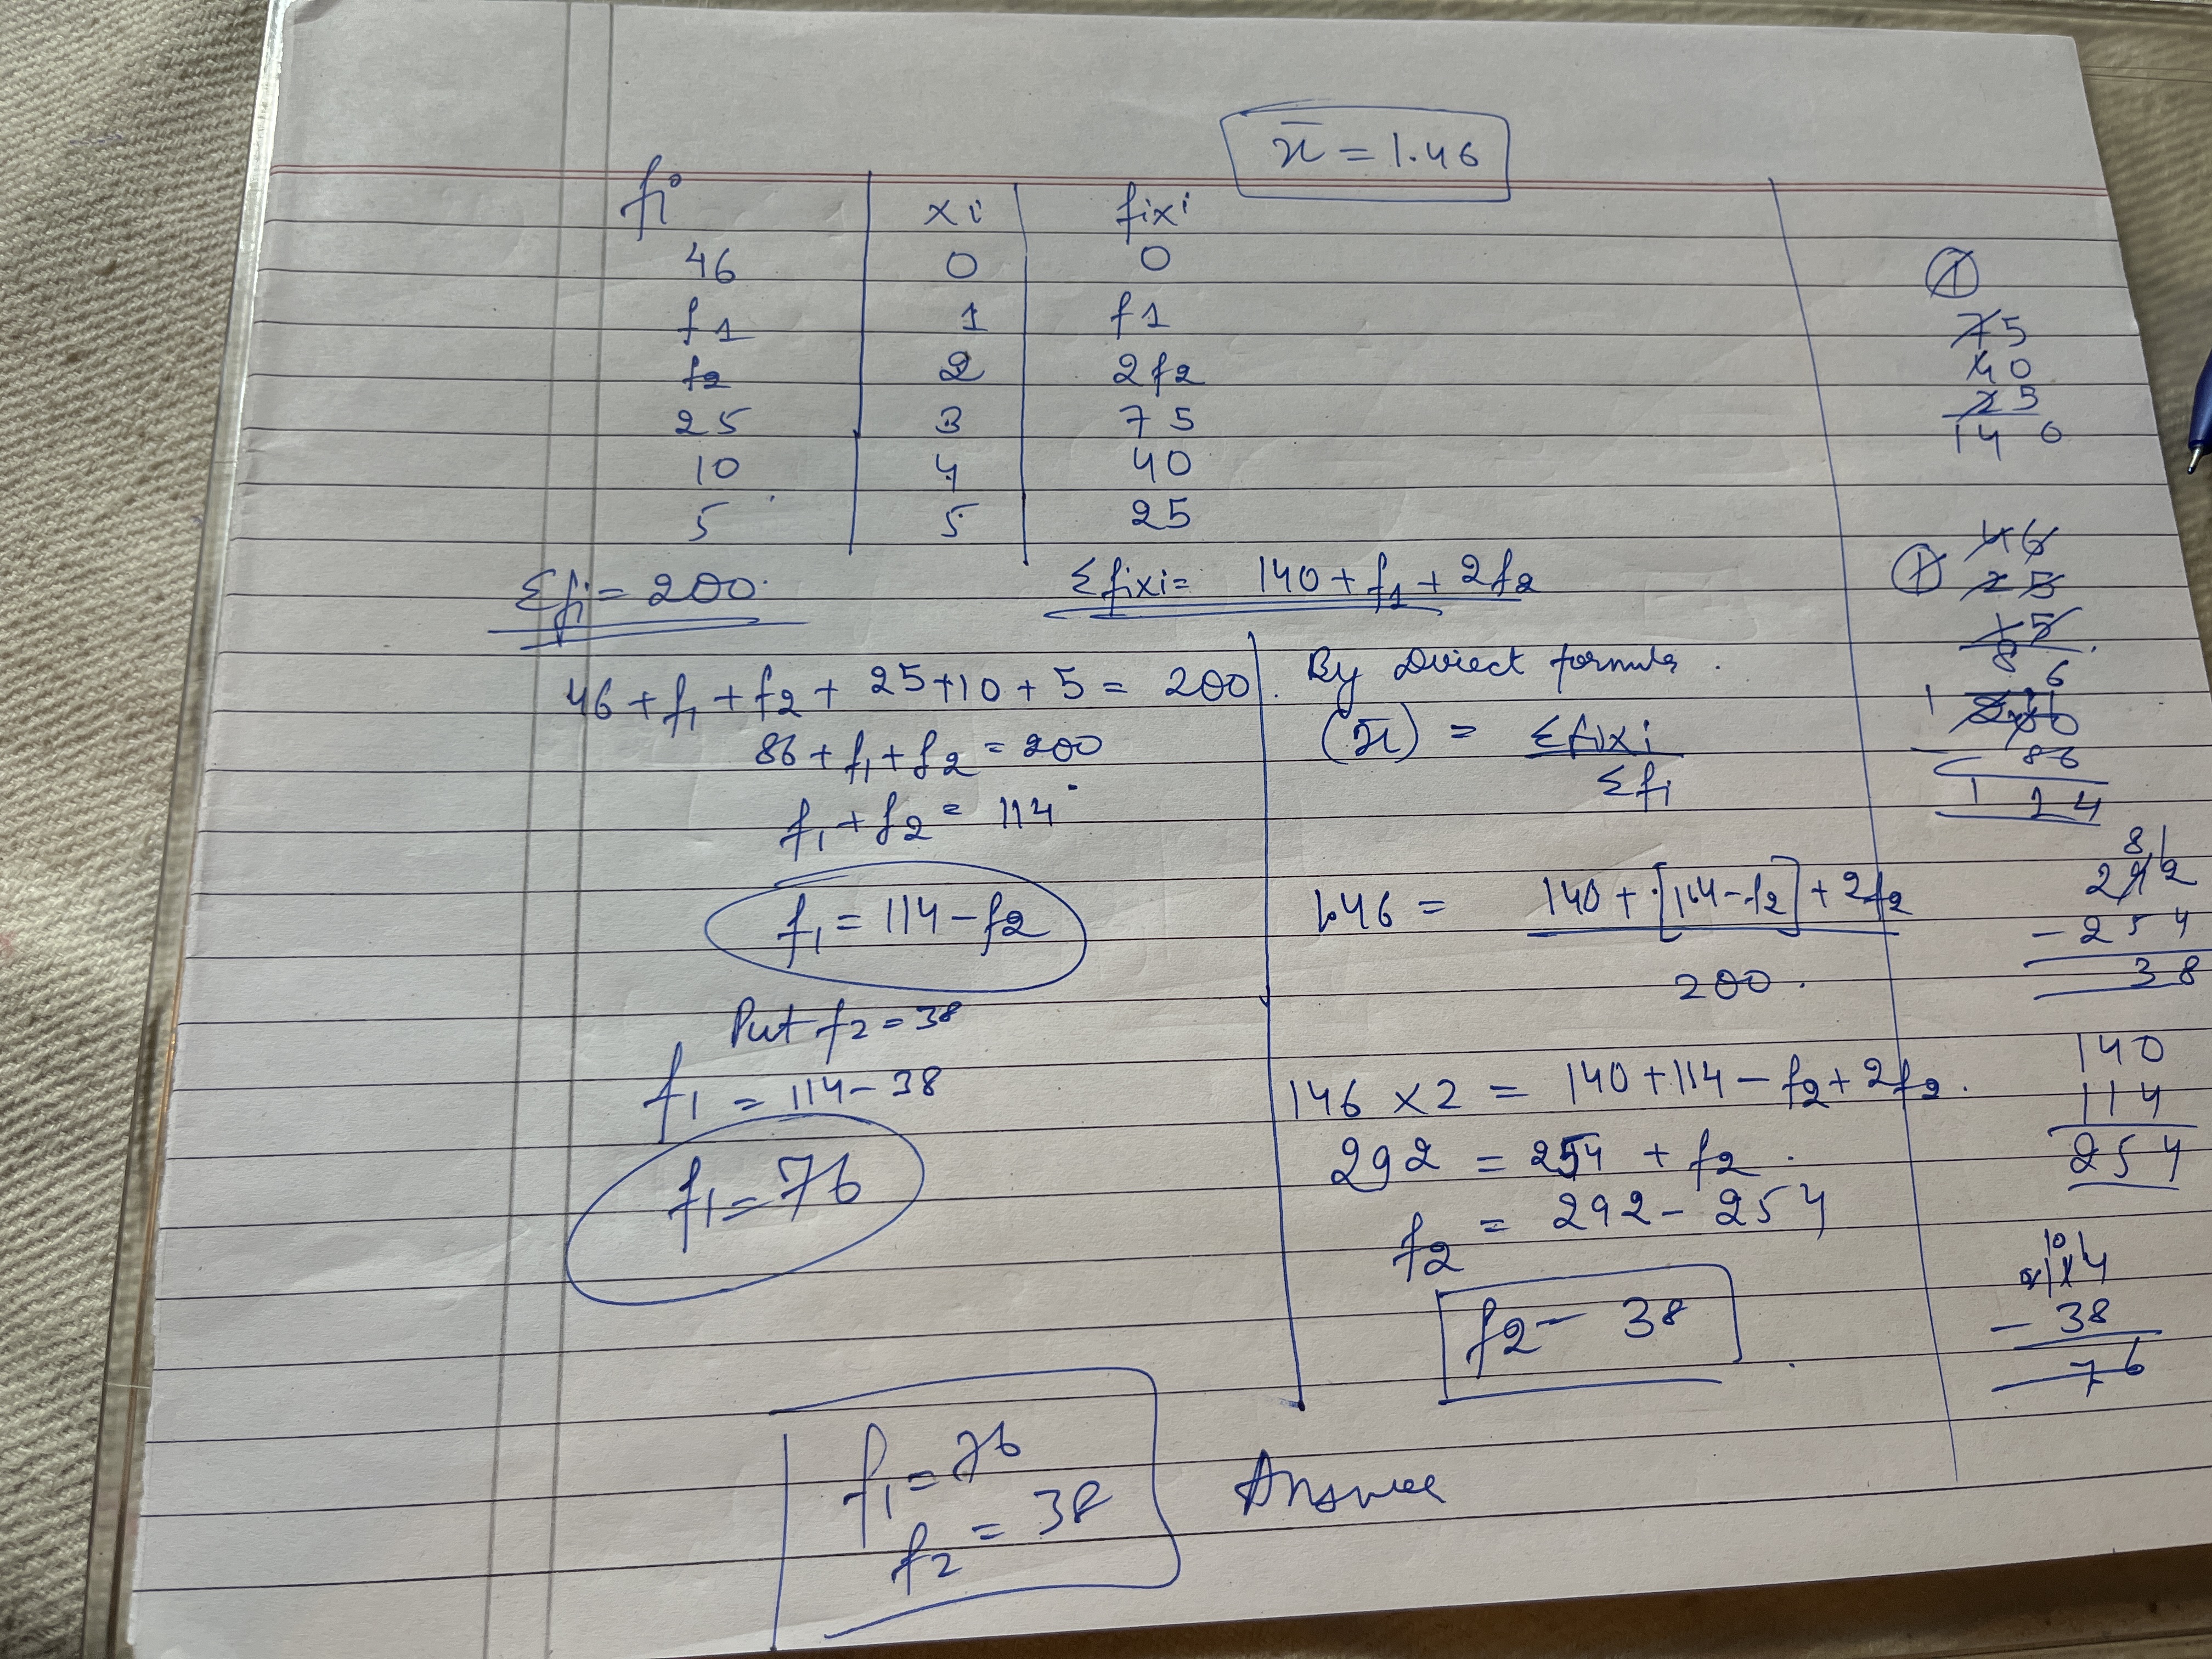 x̄ = 1.46
fi xi fixi
46 0 0
f1 1 f1
f2 2 2f2
25 3 75
10 4 40
5 5 25
Σfi = 200. Σfixi = 140 + f1 + 2f2
46 + f1 + f2 + 25+10 + 5 = 200.
86 + f1 + f2 = 200
f1 + f2 = 114
f1 = 114 - f2
Put f2 = 38
f1 = 114 - 38
f1 = 76
By Direct formula.
(x̄) = Σfixi
Σfi
1.46 = 140 + [114 - f2] + 2f2
200.
146 × 2 = 140 + 114 - f2 + 2f2.
292 = 254 + f2.
f2 = 292 - 254
f2 = 38
f1 = 76
f2 = 38
Answer
1
75
40
25
140
1 46
25
15
86
200
- 86
114
292
- 254
38
140
114
254
114
- 38
76